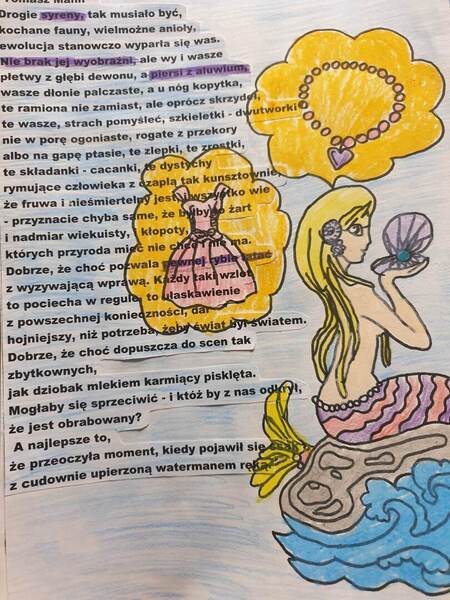 Tomasz Mann
Drogie syreny, tak musiało być,
kochane fauny, wielmożne anioły,
ewolucja stanowczo wyparła się was.
Nie brak jej wyobraźni, ale wy i wasze
płetwy z głębi dewonu, a piersi z aluwium,
wasze dłonie palczaste, a u nóg kopytka,
te ramiona nie zamiast, ale oprócz skrzydeł,
te wasze, strach pomyśleć, szkieletki - dwutworki
nie w porę ogoniaste, rogate z przekory
albo na gapę ptasie, te zlepki, te zrostki,
te składanki - cacanki, te dystychy
rymujące człowieka z czaplą tak kunsztownie,
że fruwa i nieśmiertelny jest i wszystko wie
- przyznacie chyba same, że byłby to żart
i nadmiar wiekuisty, kłopoty,
których przyroda mieć nie chce i nie ma.
Dobrze, że choć pozwala pewnej rybie latać
z wyzywającą wprawą. Każdy taki wzlot
to pociecha w regule, to ułaskawienie
z powszechnej konieczności, dar
hojniejszy, niż potrzeba, żeby świat był światem.
Dobrze, że choć dopuszcza do scen tak
zbytkownych,
jak dziobak mlekiem karmiący pisklęta.
Mogłaby się sprzeciwić - i któż by z nas odkrył,
że jest obrabowany?
A najlepsze to,
że przeoczyła moment, kiedy pojawił się ssak
z cudownie upierzoną watermanem ręką.